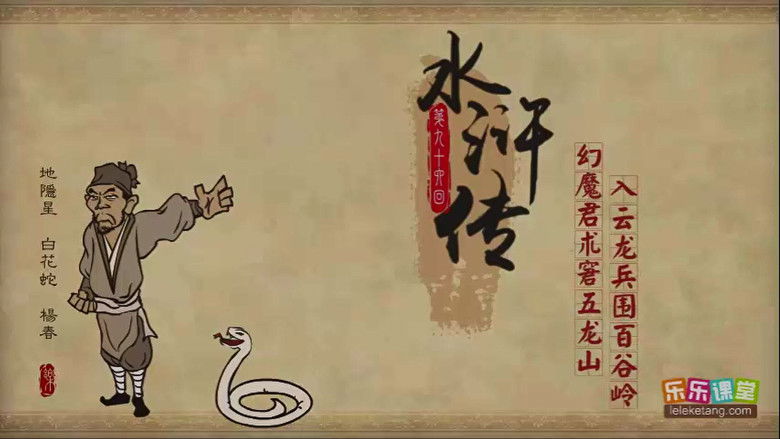 水浒传
第九十四回
幻魔君术窘五龙山
入云龙兵围百谷岭
地隐星 白花蛇 楊春
乐乐课堂
leleketang.com